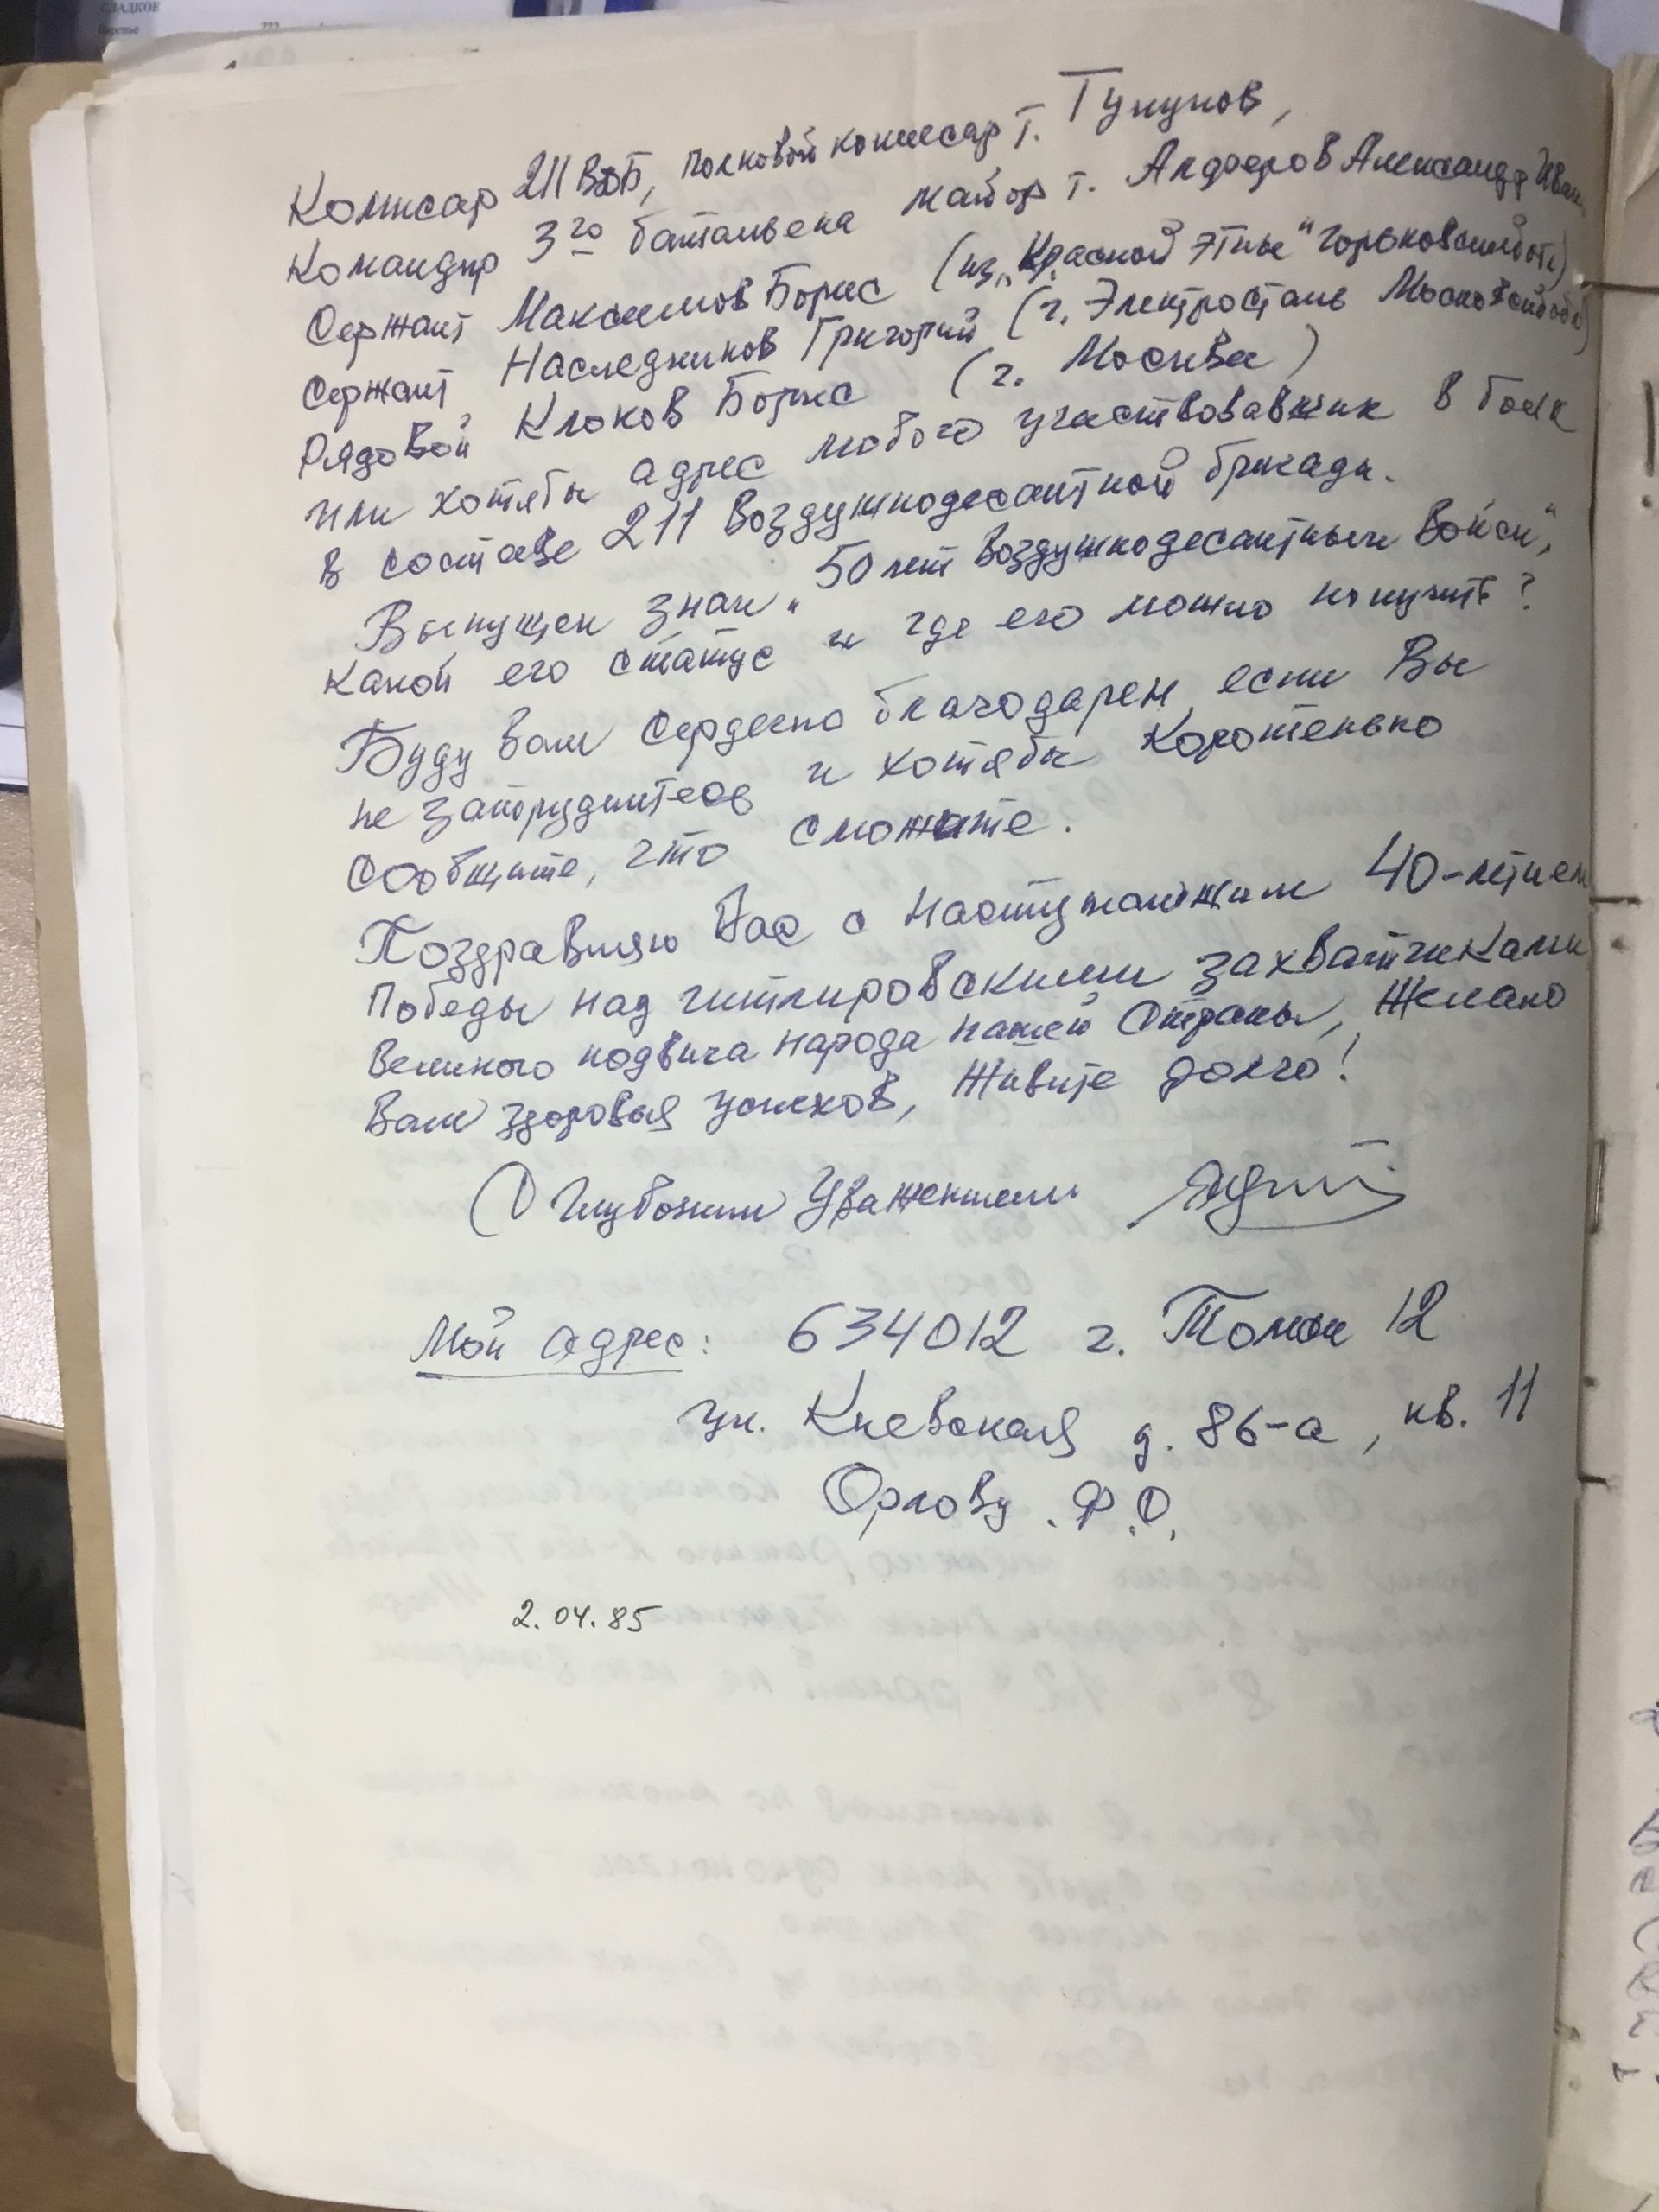 СЛАДКОЕ
Варенье
Комисар 211 ВДБ, полковой комисар т. Гунунов,
Командир 3го баталъена майор т. Алфёров Александр Иван
Сержант Максимов Борис (из „Красной Этны" Горьковской обл)
Сержант Наследников Григорий (г. Электросталь Московской обл)
Рядовой Клоков Борис (г. Москва)
или хотябы адрес любого участвовавших в боях
в составе 211 воздушнодесантной бригады.
Выпущен знак „50 лет воздушнодесантным войск",
какой его статус и где его можно получить?
Буду вам сердечно благодарен, если Вы
не затрудитесь и хотябы коротенько
сообщите, что сможите.
Поздравляю Вас с наступающим 40-летием
Победы над гитлировскими захватчиками
великого подвига народа нашей Страны, Желаю
Вам здоровья успехов, Живите долго!
С глубоким Уважением
Мой адрес: 634012 г. Томск 12
ул. Киевская д. 86-а, кв. 11
Орлову. Ф.С.
2.04.85